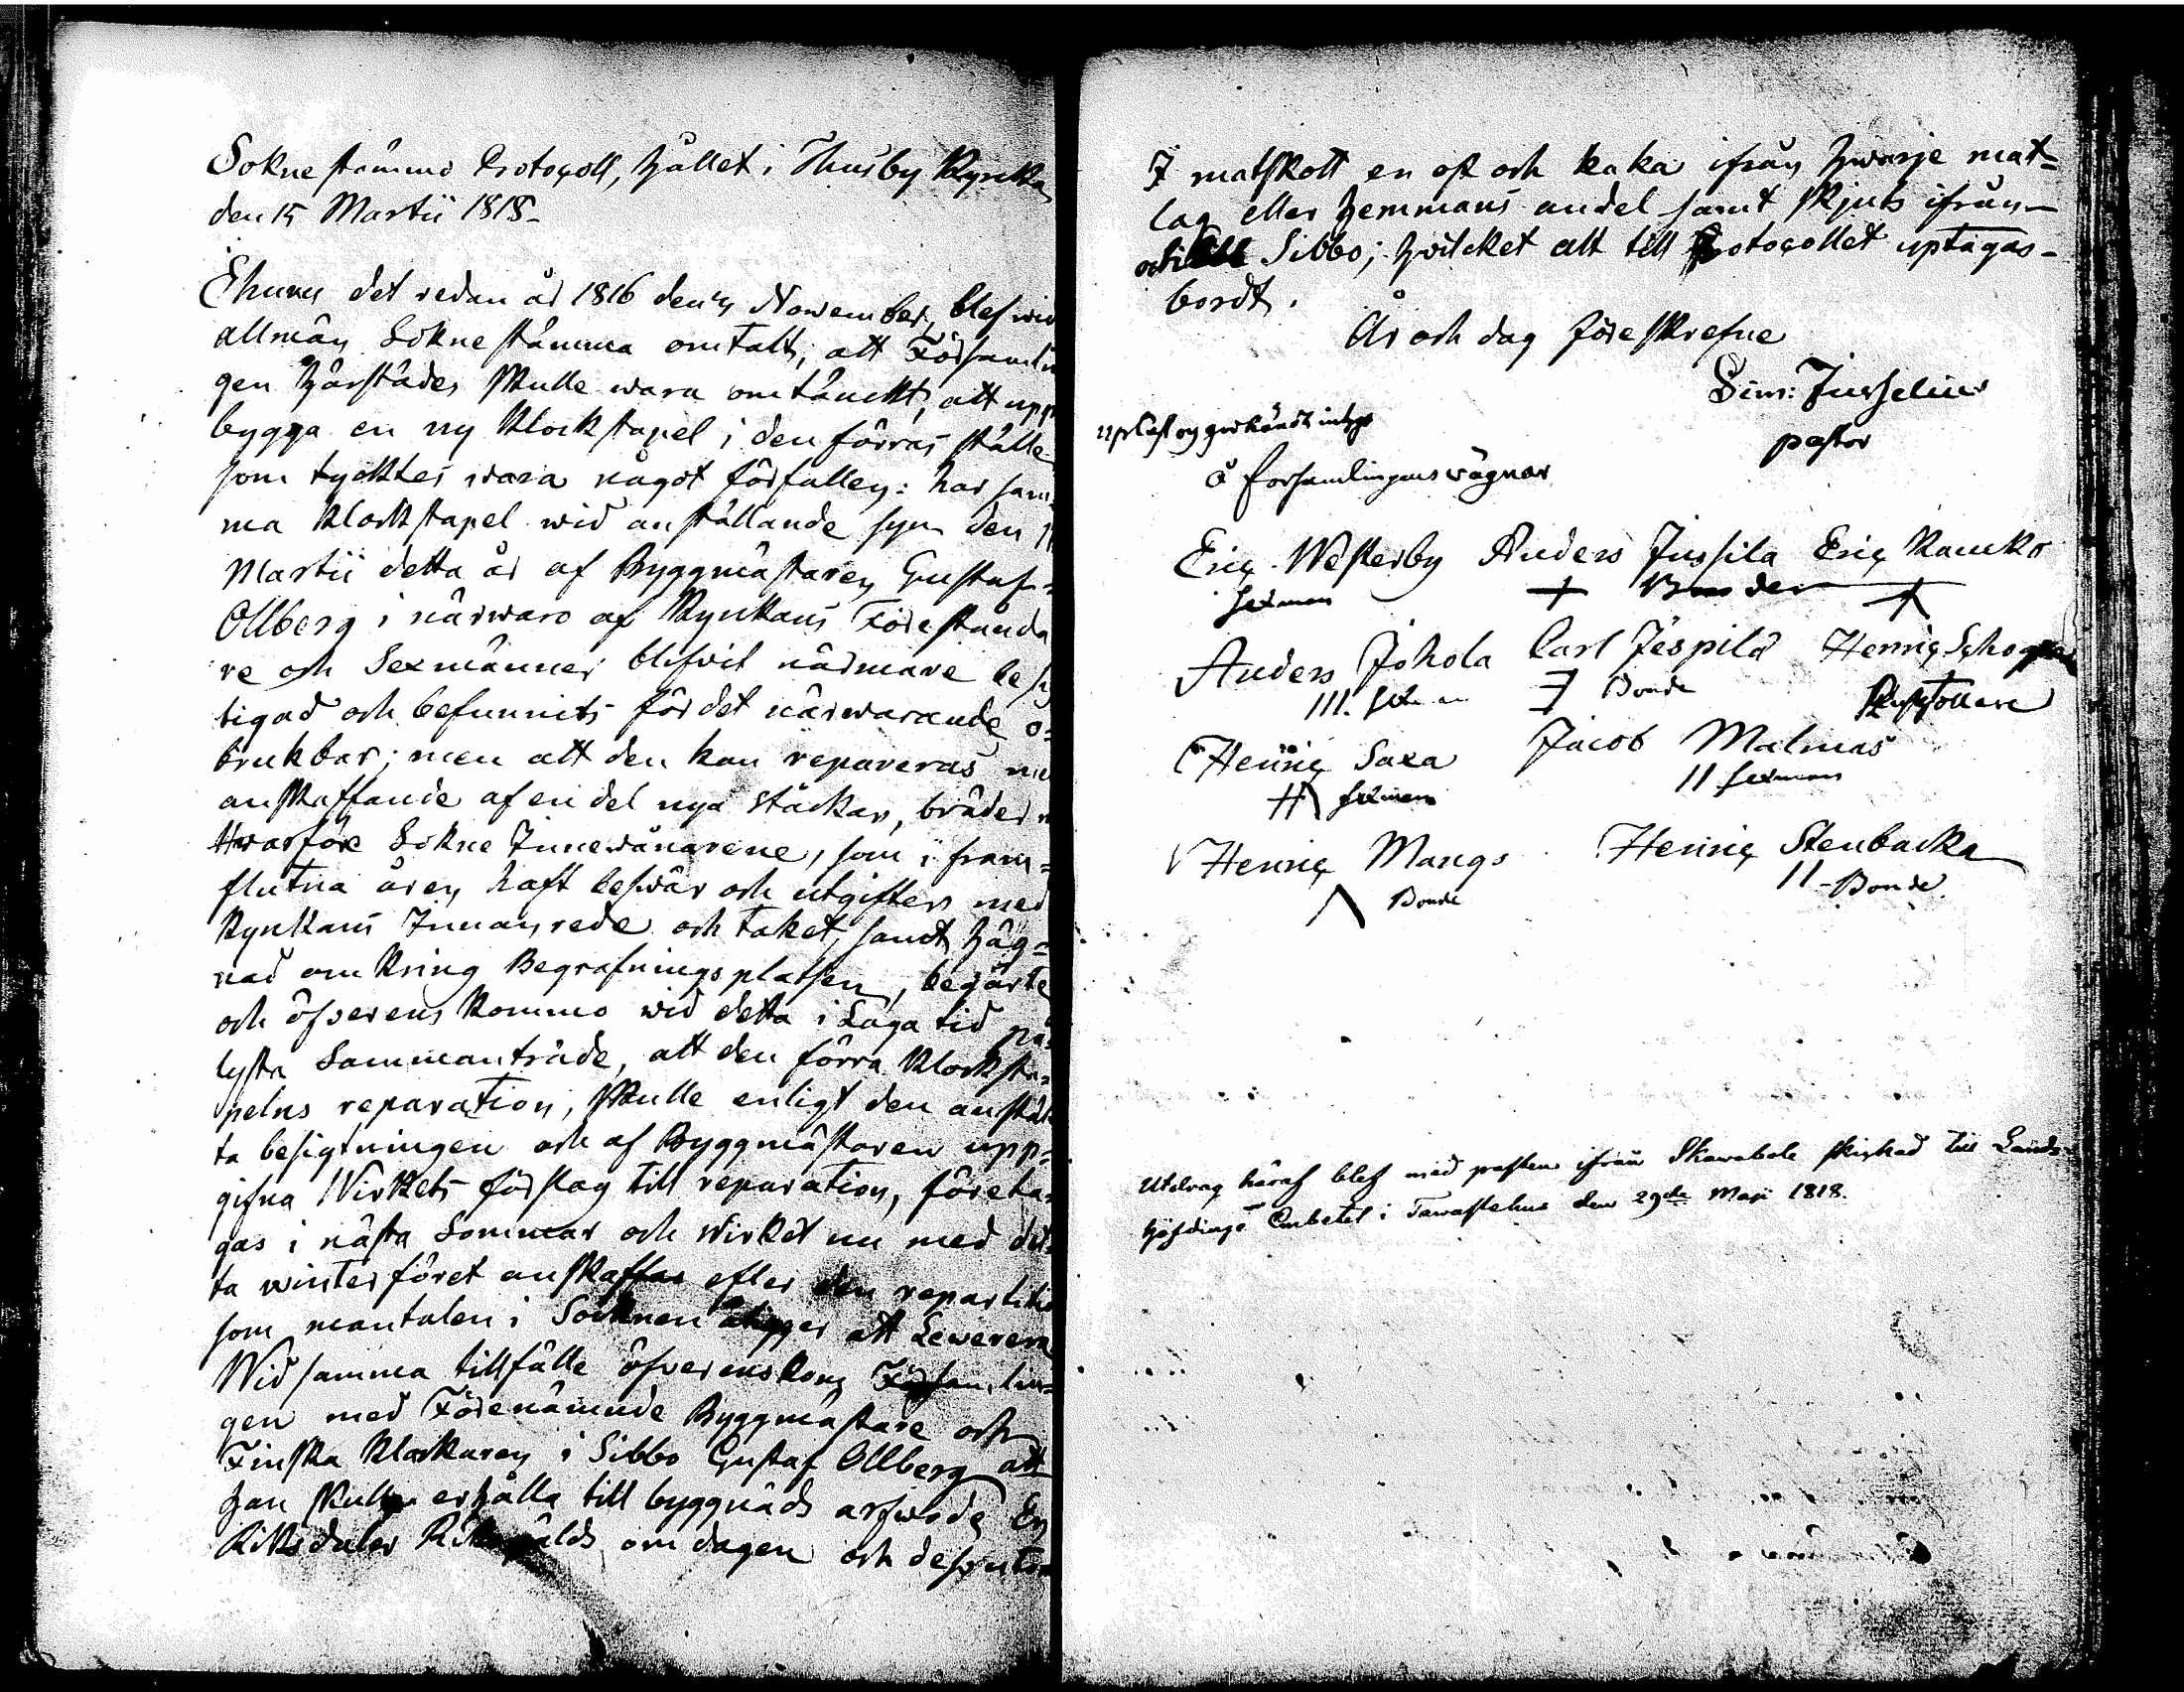 Sokne stämmo Protocoll, hållet i Thusby Kyrcka
den 15 Martii 1818-
Ehuru det redan år 1816 den Nowember, blef wid
allmän Sokne stämma omtalt, att Församlin
gen härstädes skulle wara omtänckt, att upp
bygga en ny Klockstapel i den förras ställe
som tycktes wara något förfallen: har sam-
ma Klockstapel wid anställande syn den 11
Martii detta år af Byggmästaren Gustaf
Ollberg i närwaro af Kyrkans Förestånda
re och Sexmänner blifwit närmare besig
tigad och befunnits för det närwarande o=
brukbar; men att den kan repareras med
anskaffande af en del nya stäckar, bräder
Hwarföre Sokne Innewånarene, som i fram=
flutna åren haft beswär och utgifter med
Kyrkans Innanrede och taket, samt häg=
nad omkring Begrafningsplatsen, begärte
och öfverens kommo wid detta i Laga tid på
lysta Sammanträde, att den förra Klocksta=
pelns reparation, skulle enligt den anstäl
ta besigtningen och af Byggmästaren upp=
gifna Wirkets förslag till reparation, företa=
gas i nästa Sommar och wirket nu med det
ta winterföret anskaffas efter den repartition
som mantalen i Socknen åligger att Lewerera
Wid samma tillfälle öfverenskom Församlin=
gen med Förenämnde Byggmästare och
Finska Klockaren i Sibbo Gustaf Ollberg att
han skulle erhålla till byggnads arfwode En
Riksdaler Riksgälds om dagen och dessutom
I matskott en ost och kaka ifrån hwarje mat=
lag eller hemmans andel samt skjuts ifrån-
och till Sibbo; hwilcket allt till Protocollet uptagas-
bordt.
År och dag föreskrefne
Sim: Jusselius
pastor
upläst og godkändt intyga
å församlingens wägnar
Eric Westerby Anders Jussila Eric Rancko
sexman Bonder
Anders Johola Carl Jespilä Henric
III. Bonde Rusthållare
Henric Saxa Jacob Malmas
sexman II sexman
Henric Mangs Henric Stenbacka
Bonde II - Bonde
Utdrag häraf blef med posten ifrån Skawabole skickad till Lands-
höfdinge Embetet i Tawastehus den 29de Maji 1818.